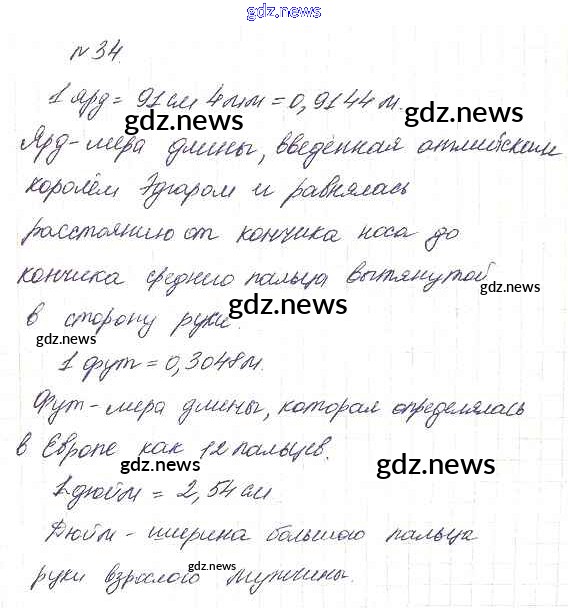 gdz.news
№34
1 ярд = 91 см 4 мм = 0,9144 м.
gdz.news gdz.news
Ярд - мера длины, введённая английским
королём Эдгаром и равнялась
расстоянию от кончика носа до
кончика среднего пальца вытянутой
gdz.news
в сторону руки.
gdz.news
gdz.news
1 фут = 0,3048 м.
Фут - мера длины, которая определялась
в Европе как 12 пальцев.
gdz.news gdz.news
1 дюйм = 2,54 см
Дюйм - ширина большого пальца
gdz.news
руки взрослого мужчины.